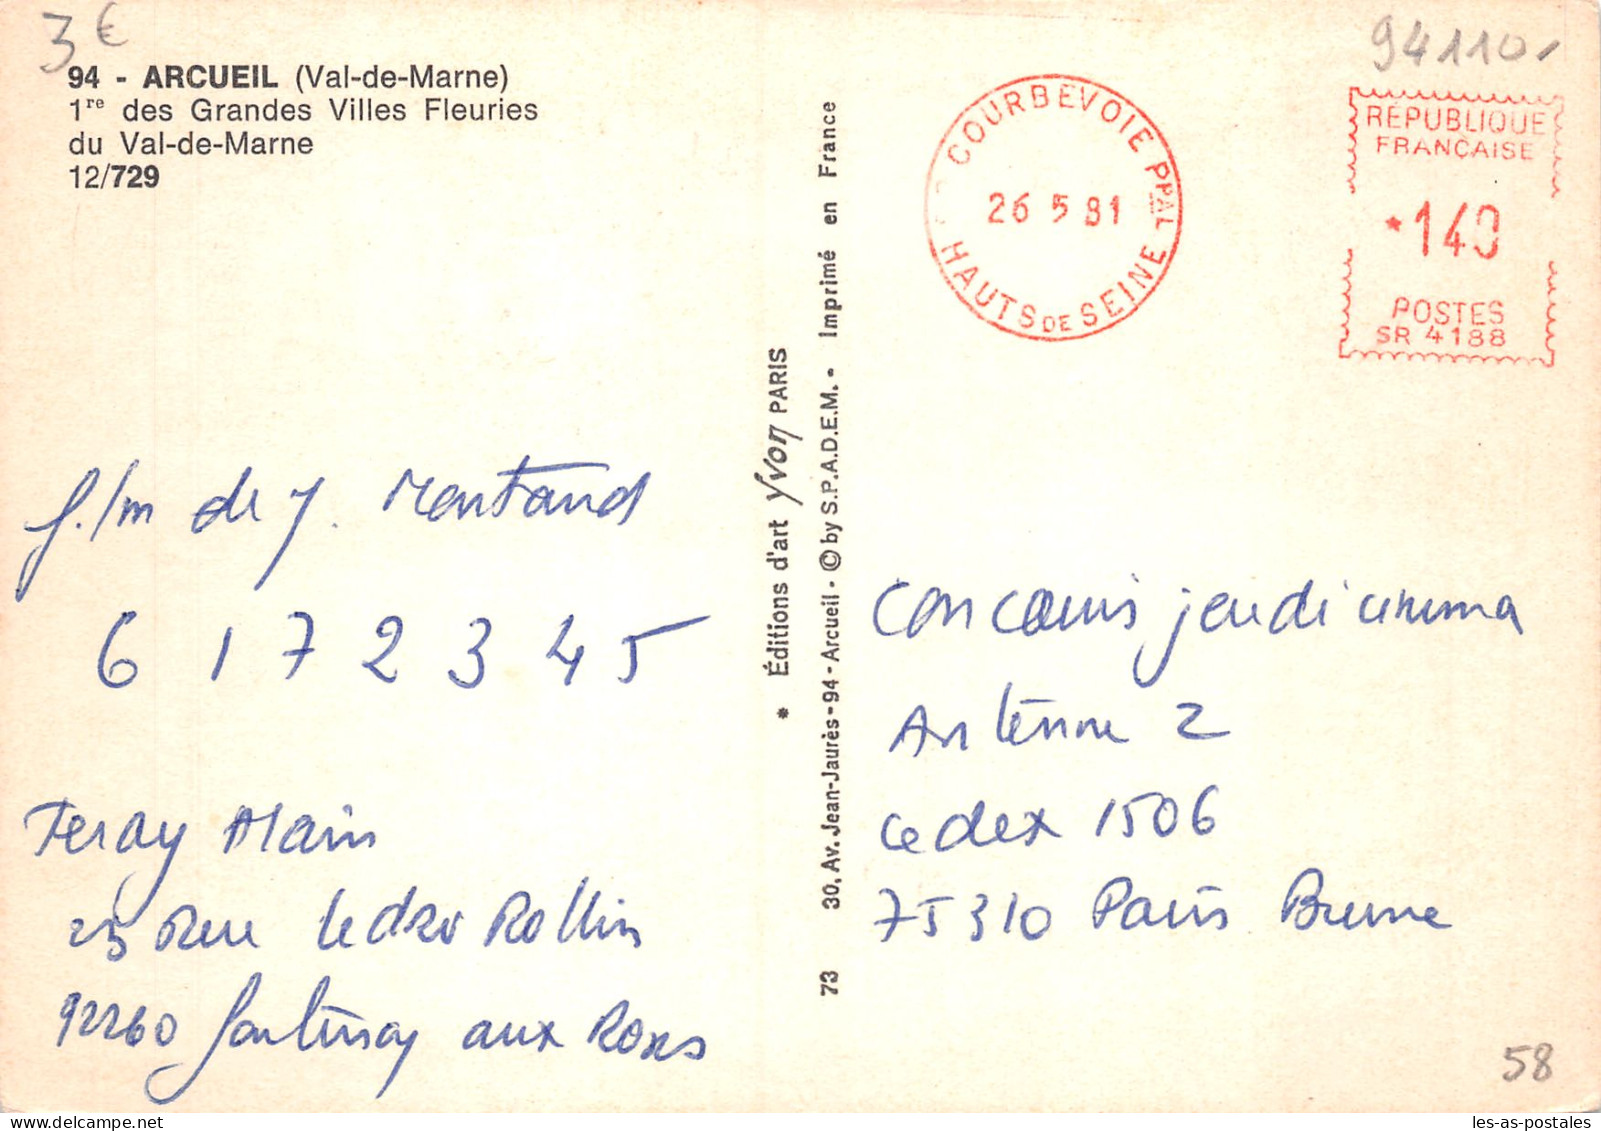 3 €
94 - ARCUEIL (Val-de-Marne)
1re des Grandes Villes Fleuries
du Val-de-Marne
12/729
f./m de Y. Montand
6 1 7 2 3 4 5
Feray Alain
25 Rue Ledru Rollin
92260 Fontenay aux Roses
* Éditions d'art Yvon PARIS
73 30, Av. Jean-Jaurès-94-Arcueil - © by S.P.A.D.E.M. - Imprimé en France
COURBEVOIE PPAL
26 5 81
HAUTS DE SEINE
94110
RÉPUBLIQUE
FRANÇAISE
*140
POSTES
SR 4188
Concours jeudi cinema
Antenne 2
Cedex 1506
75310 Paris Brune
58
les-as-postales